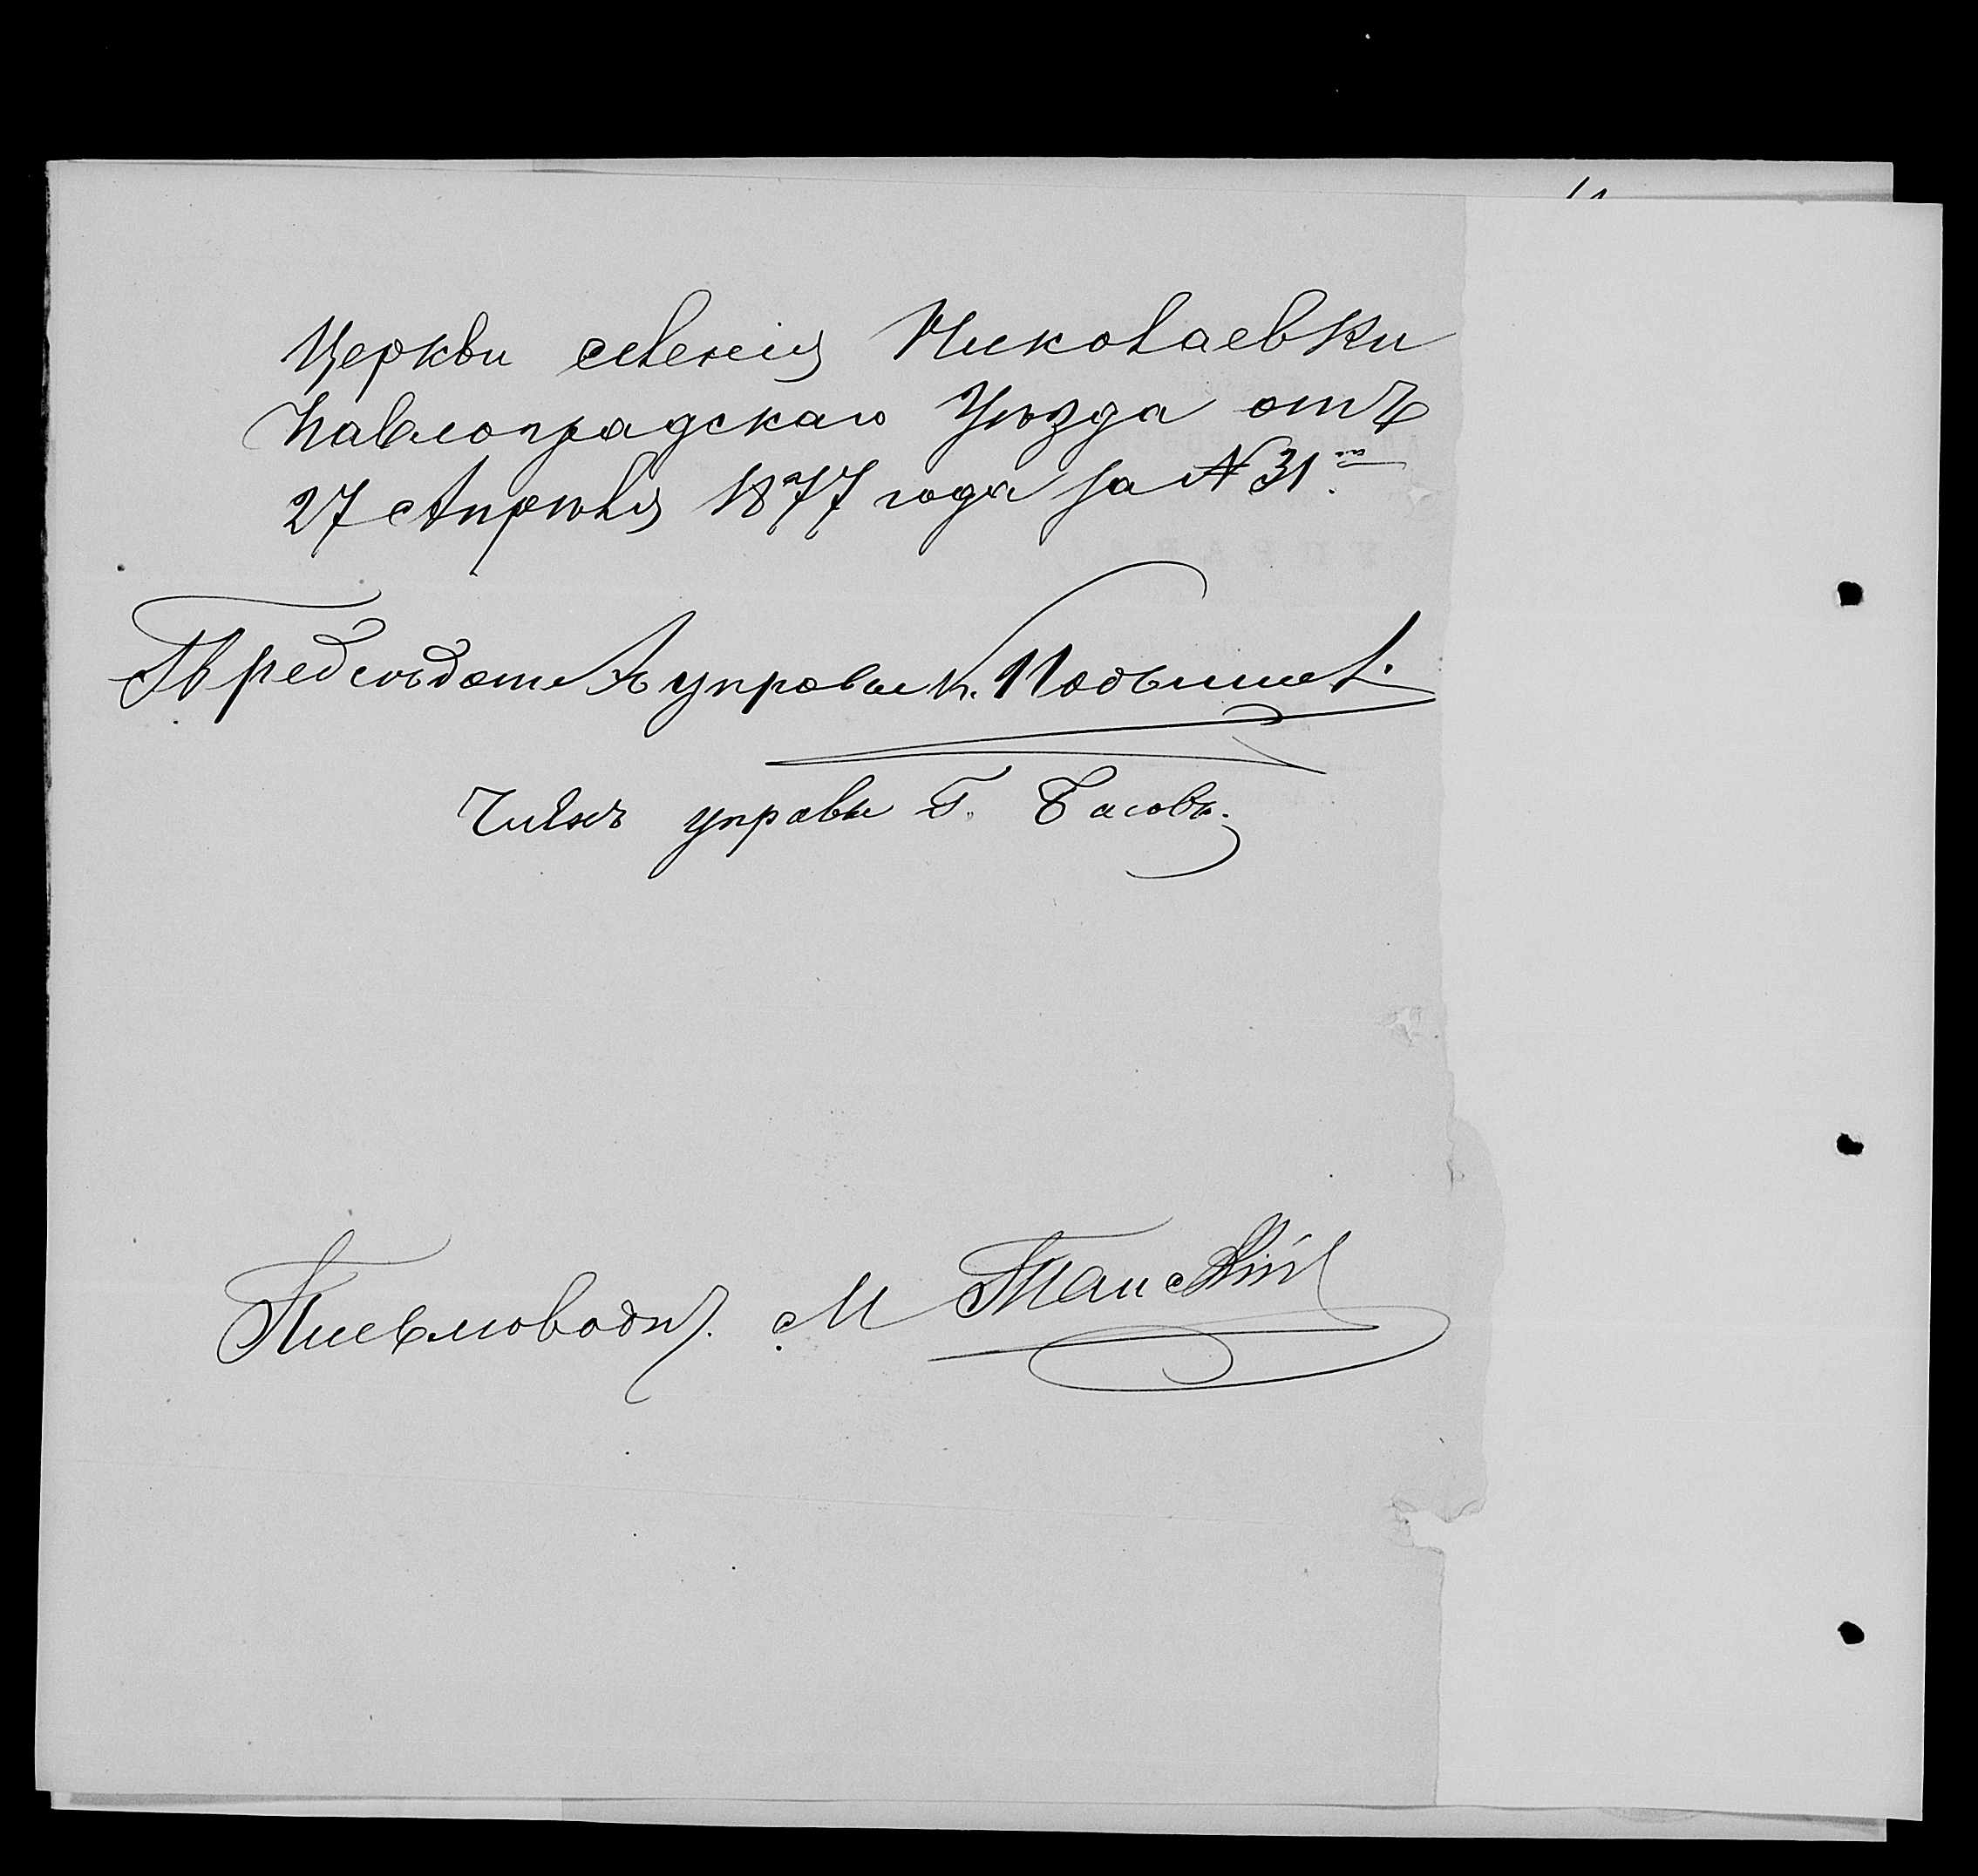 Церкви селенія Николаевки
Павлоградскаго Уѣзда отъ
27 Апрѣля 1877 года за № 31.
Предсѣдатель управы
Членъ управы Г. Басовъ.
Письмовод. М